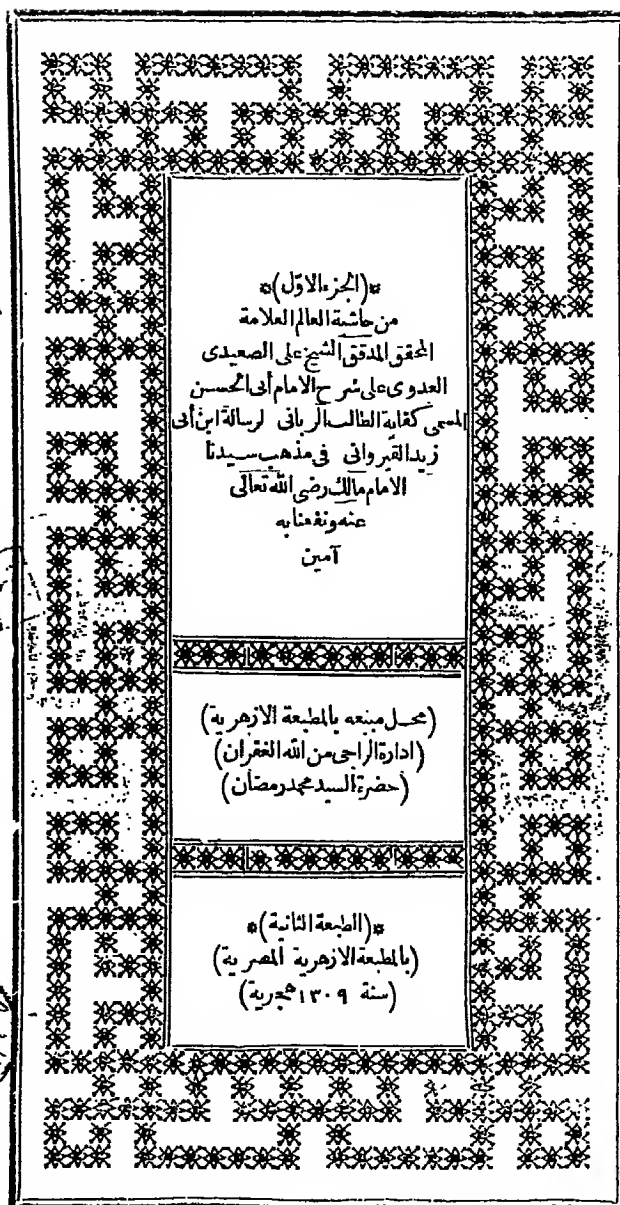 *(الجزء الاول)*
من حاشية العالم العلامة
المحقق المدقق الشيخ على الصعيدى
العدوى على شرح الامام أبى الحسن
المسمى كفاية الطالب الربانى لرسالة ابن أبى
زيد القيروانى فى مذهب سيدنا
الامام مالك رضى الله تعالى
عنه ونفعنا به
آمين
(محل مبيعه بالمطبعة الازهرية)
(ادارة الراجى من الله الغفران)
(حضرة السيد محمد رمضان)
*(الطبعة الثانية)*
(بالمطبعة الازهرية المصرية)
(سنة ١٣٠٩ هجرية)